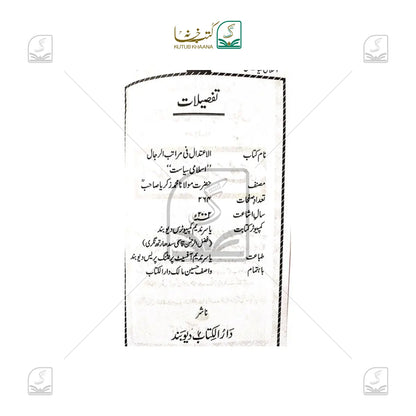 کتب خانہ
KUTUB KHAANA
تفصیلات
نام کتاب الاعتدال فی مراتب الرجال
"اسلامی سیاست"
مصنف حضرت مولانا محمد زکریا صاحبؒ
تعداد صفحات ۲۶۴
سال اشاعت ۲۰۰۲ء
کمپیوٹر کتابت یاسر ندیم کمپیوٹرس دیوبند
(فضل الرحمن قاسمی سدھارتھ نگری)
طباعت یاسر ندیم آفسیٹ پرنٹنگ پریس دیوبند
باہتمام واصف حسین مالک دارالکتاب
ناشر
دارالکتاب دیوبند